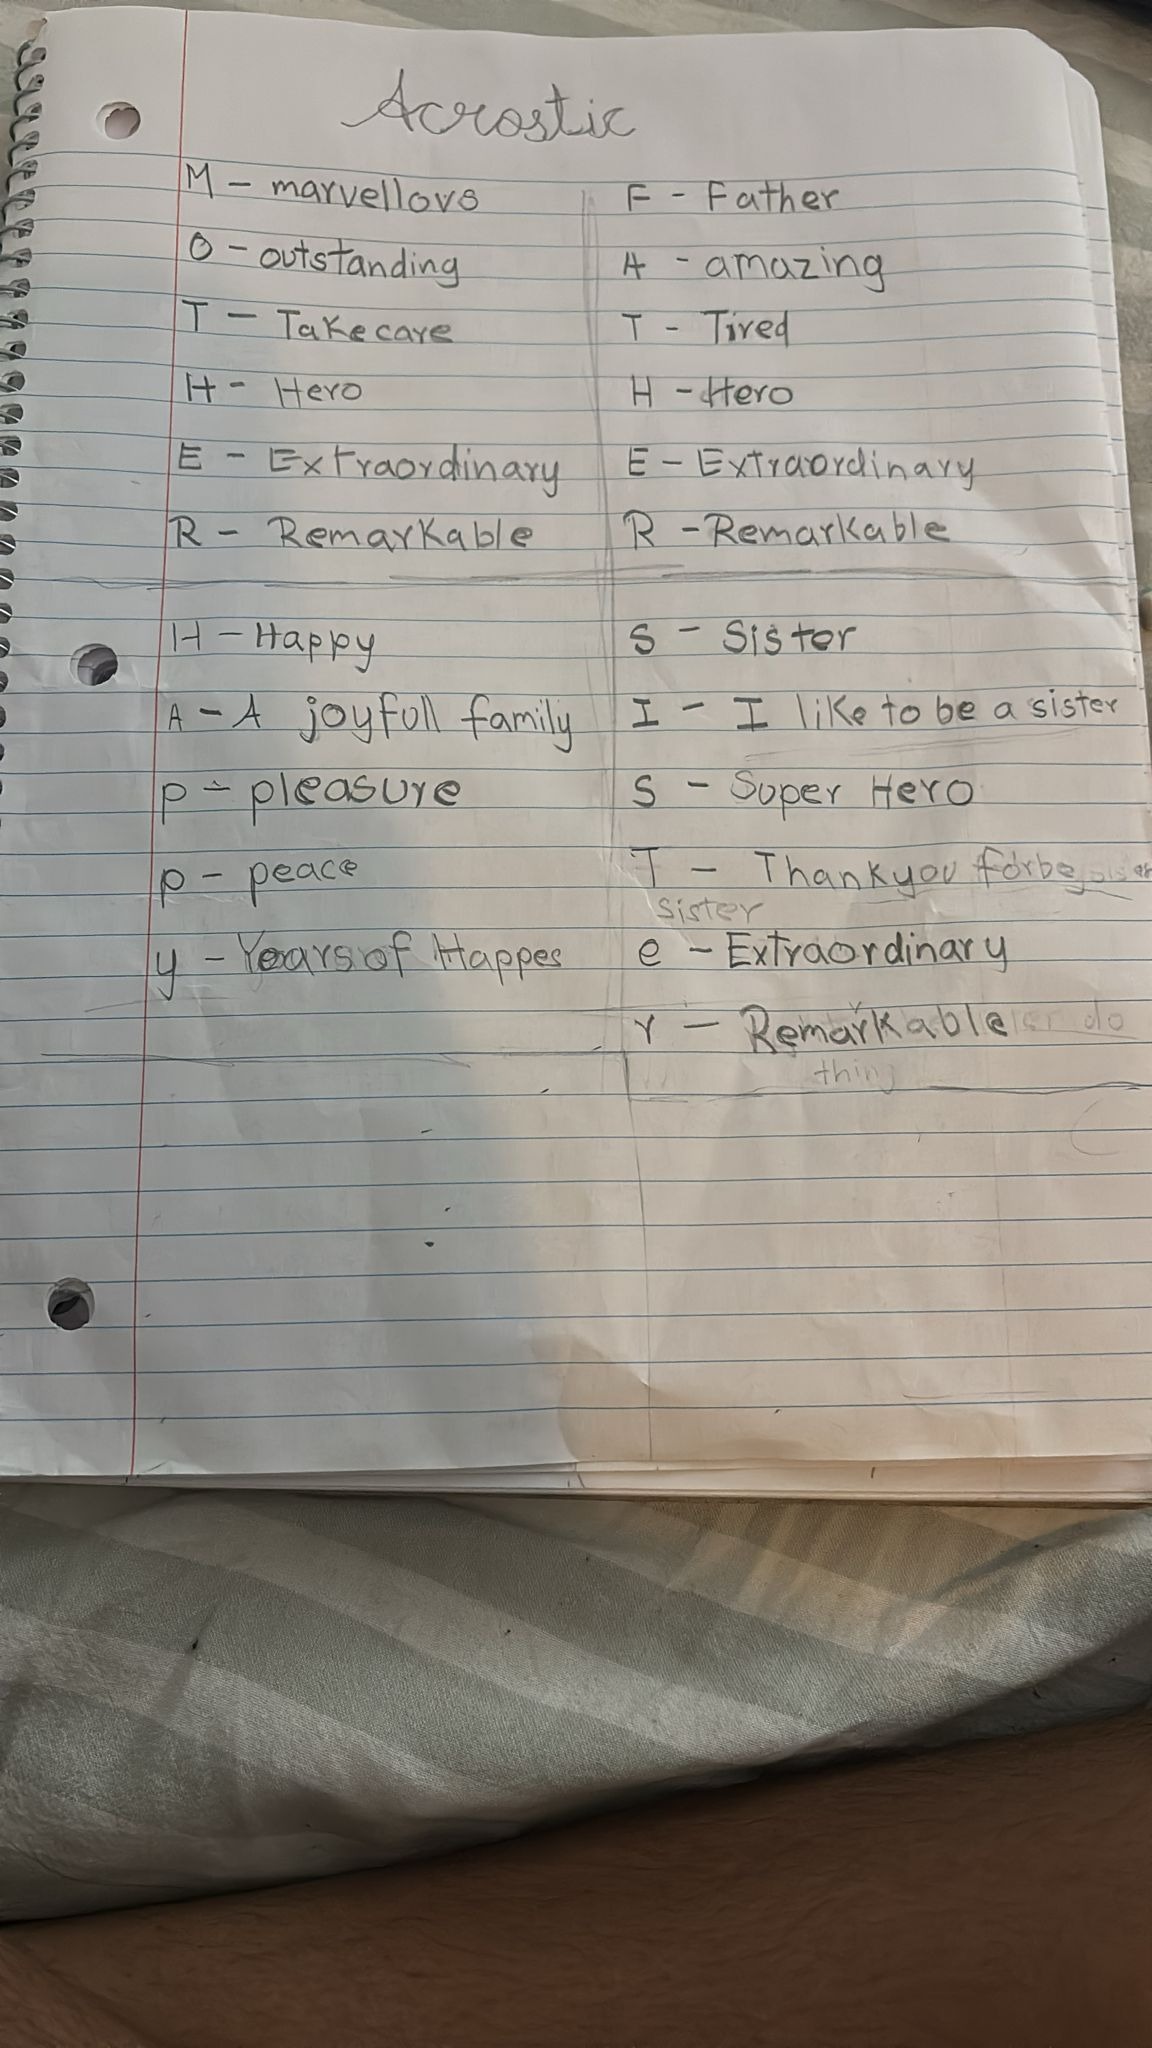 Acrostic
M - marvellovs
O - outstanding
T - Take care
H - Hero
E - Extraordinary
R - Remarkable
F - Father
A - amazing
T - Tired
H - Hero
E - Extraordinary
R - Remarkable
H - Happy
A - A joyfull family
p - pleasure
p - peace
y - Years of Happes
S - Sister
I - I like to be a sister
S - Super Hero
T - Thank you for be
sister
e - Extraordinary
r - Remarkable do
thing